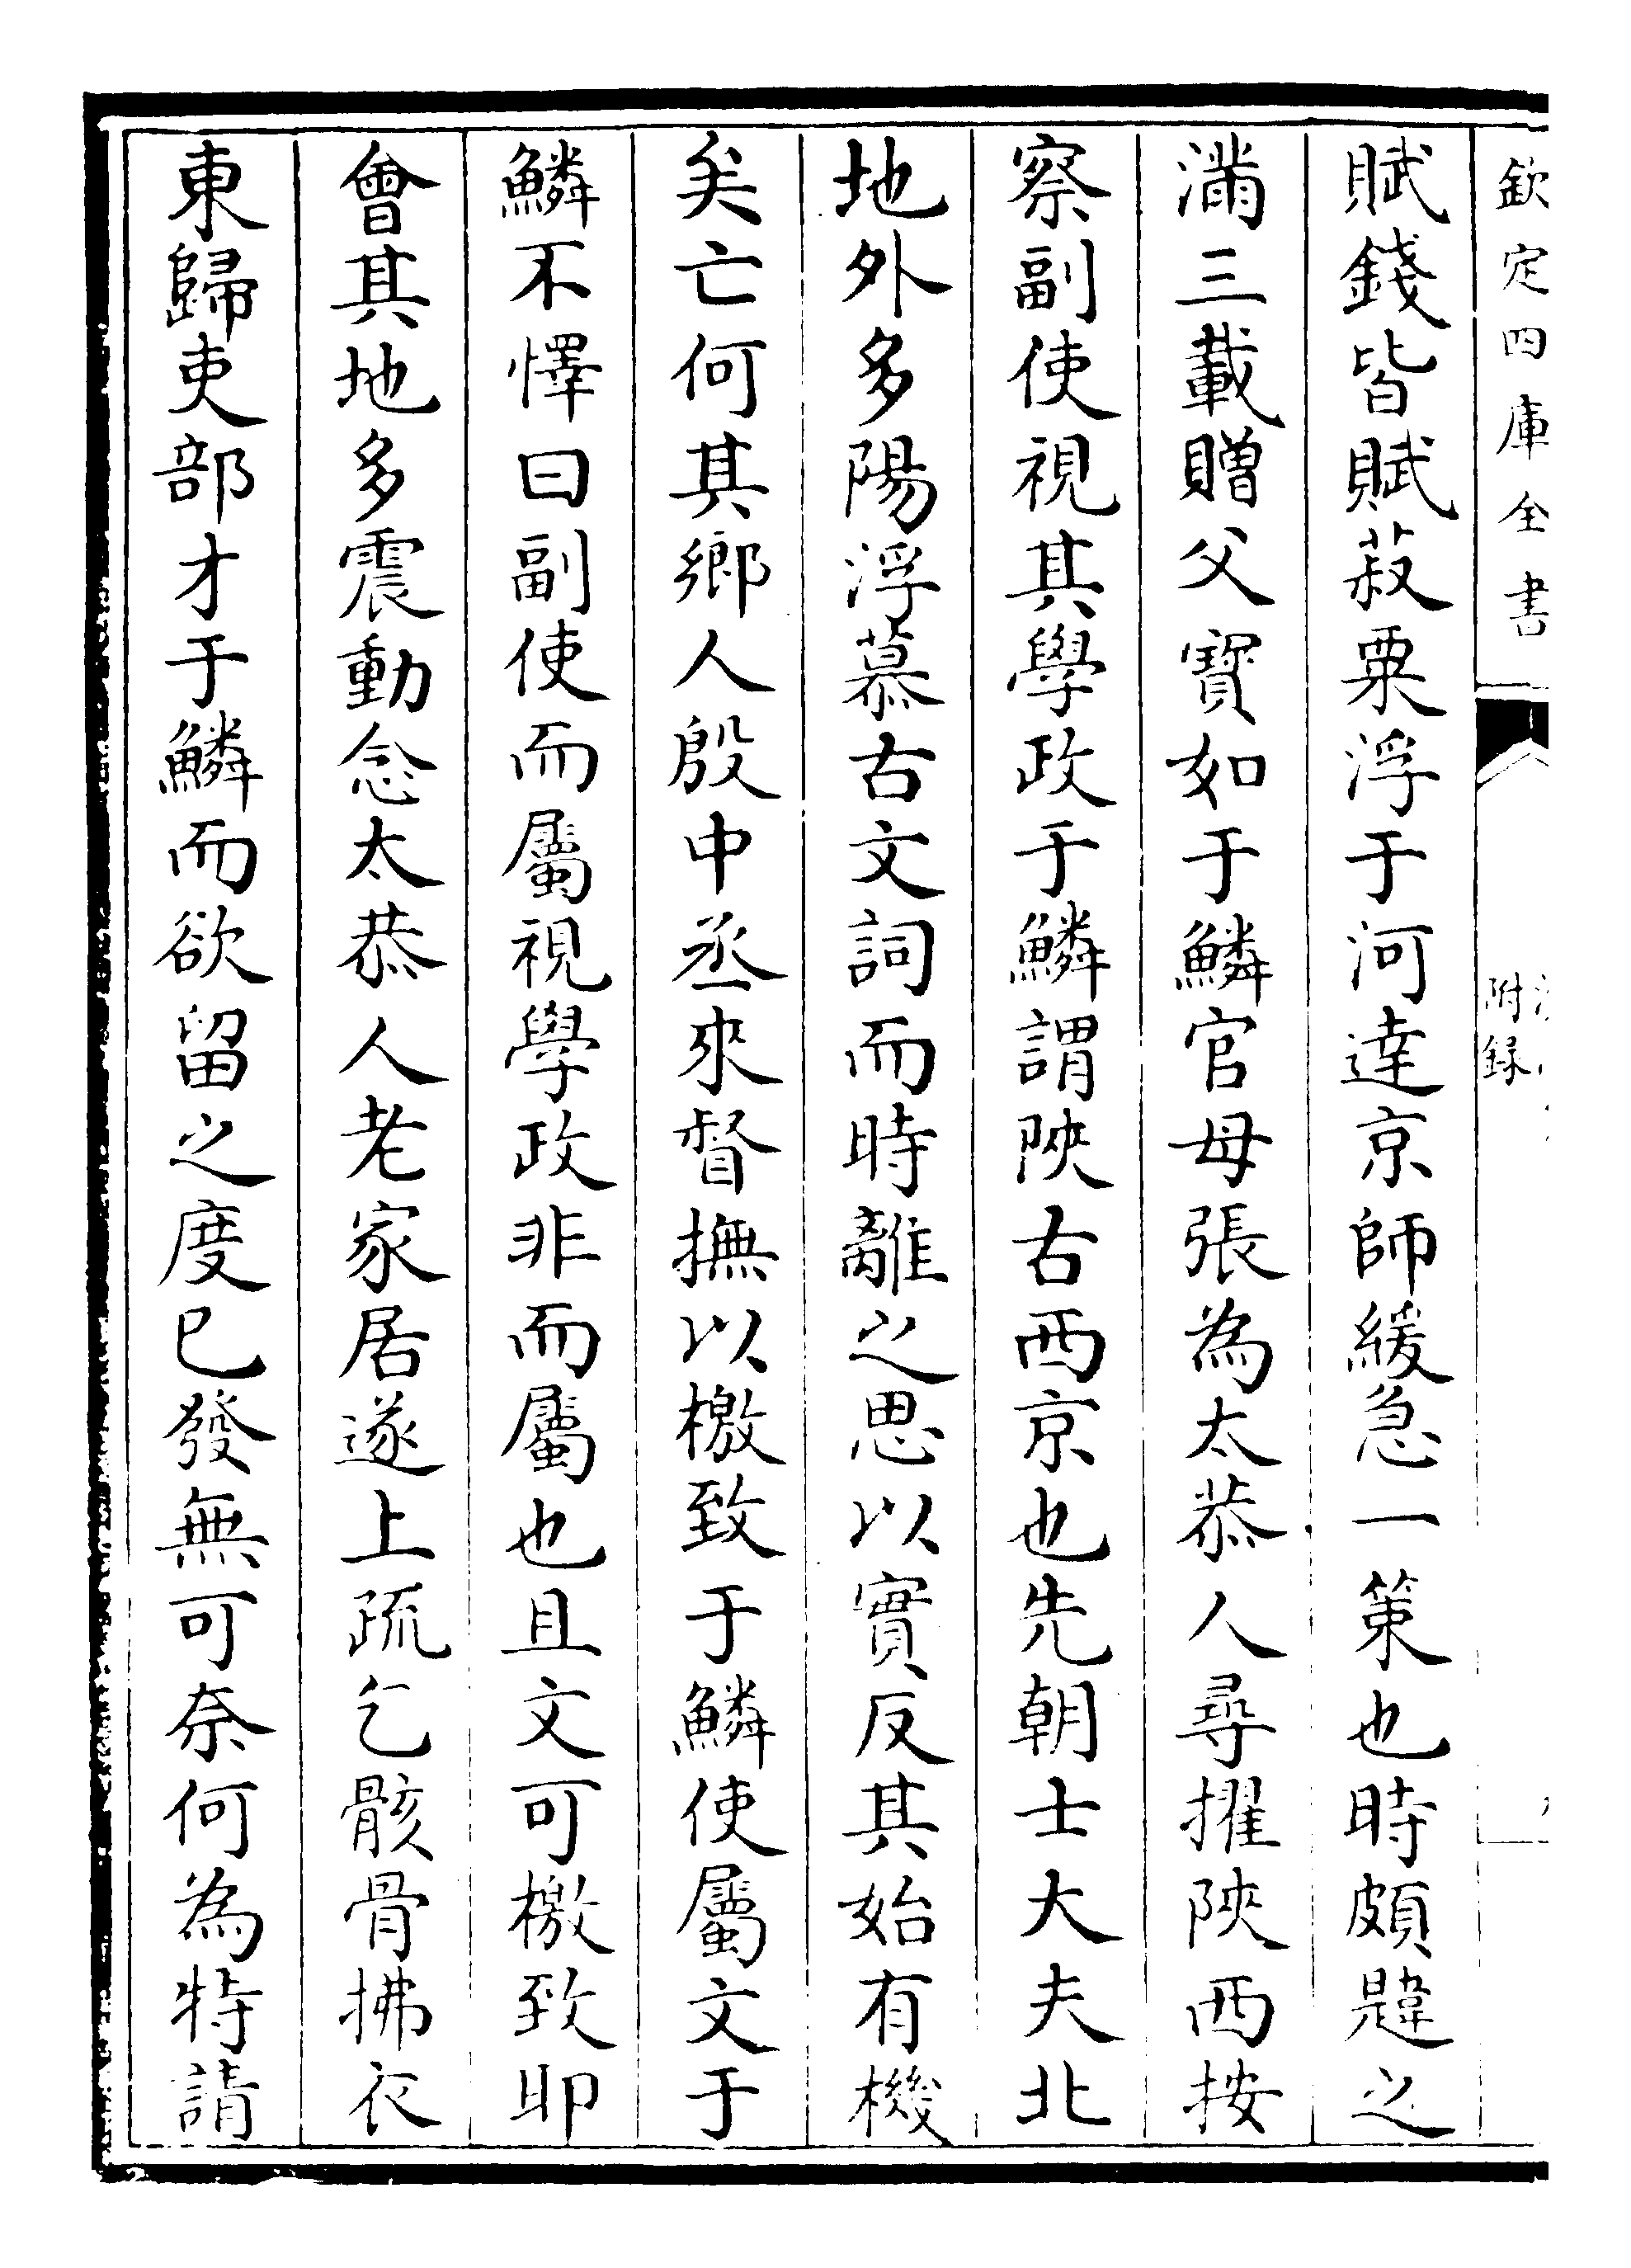 欽定四庫全書
附録
賦錢皆賦菽粟浮于河逹京師緩急一策也時頗韙之
滿三載贈父寳如于鱗官母張為太恭人尋擢陜西按
察副使視其學政于鱗謂陜右西京也先朝士大夫北
地外多陽浮慕古文詞而時離之思以實反其始有機
矣亡何其鄉人殷中丞來督撫以檄致于鱗使屬文于
鱗不懌曰副使而屬視學政非而屬也且文可檄致耶
會其地多震動念太恭人老家居遂上疏乞骸骨拂衣
東歸吏部才于鱗而欲留之度已發無可奈何為特請